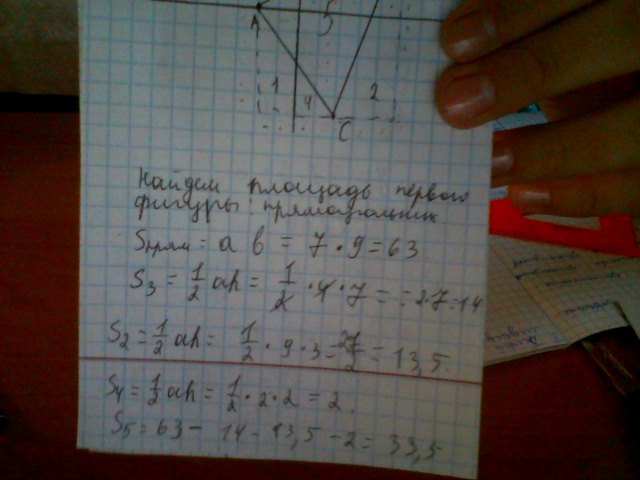 A 5
1 4 2
C
Найдем площадь первой
фигуры: прямоугольник
Sпрям = a b = 7 · 9 = 63
S3 = 1/2 ah = 1/2 · 4 · 7 = = 2·7=14
S2 = 1/2 ah = 1/2 · 9 · 3 = 27/2 = 13,5.
S4 = 1/2 ah = 1/2 · 2 · 2 = 2.
S5 = 63 - 14 - 13,5 - 2 = 33,5